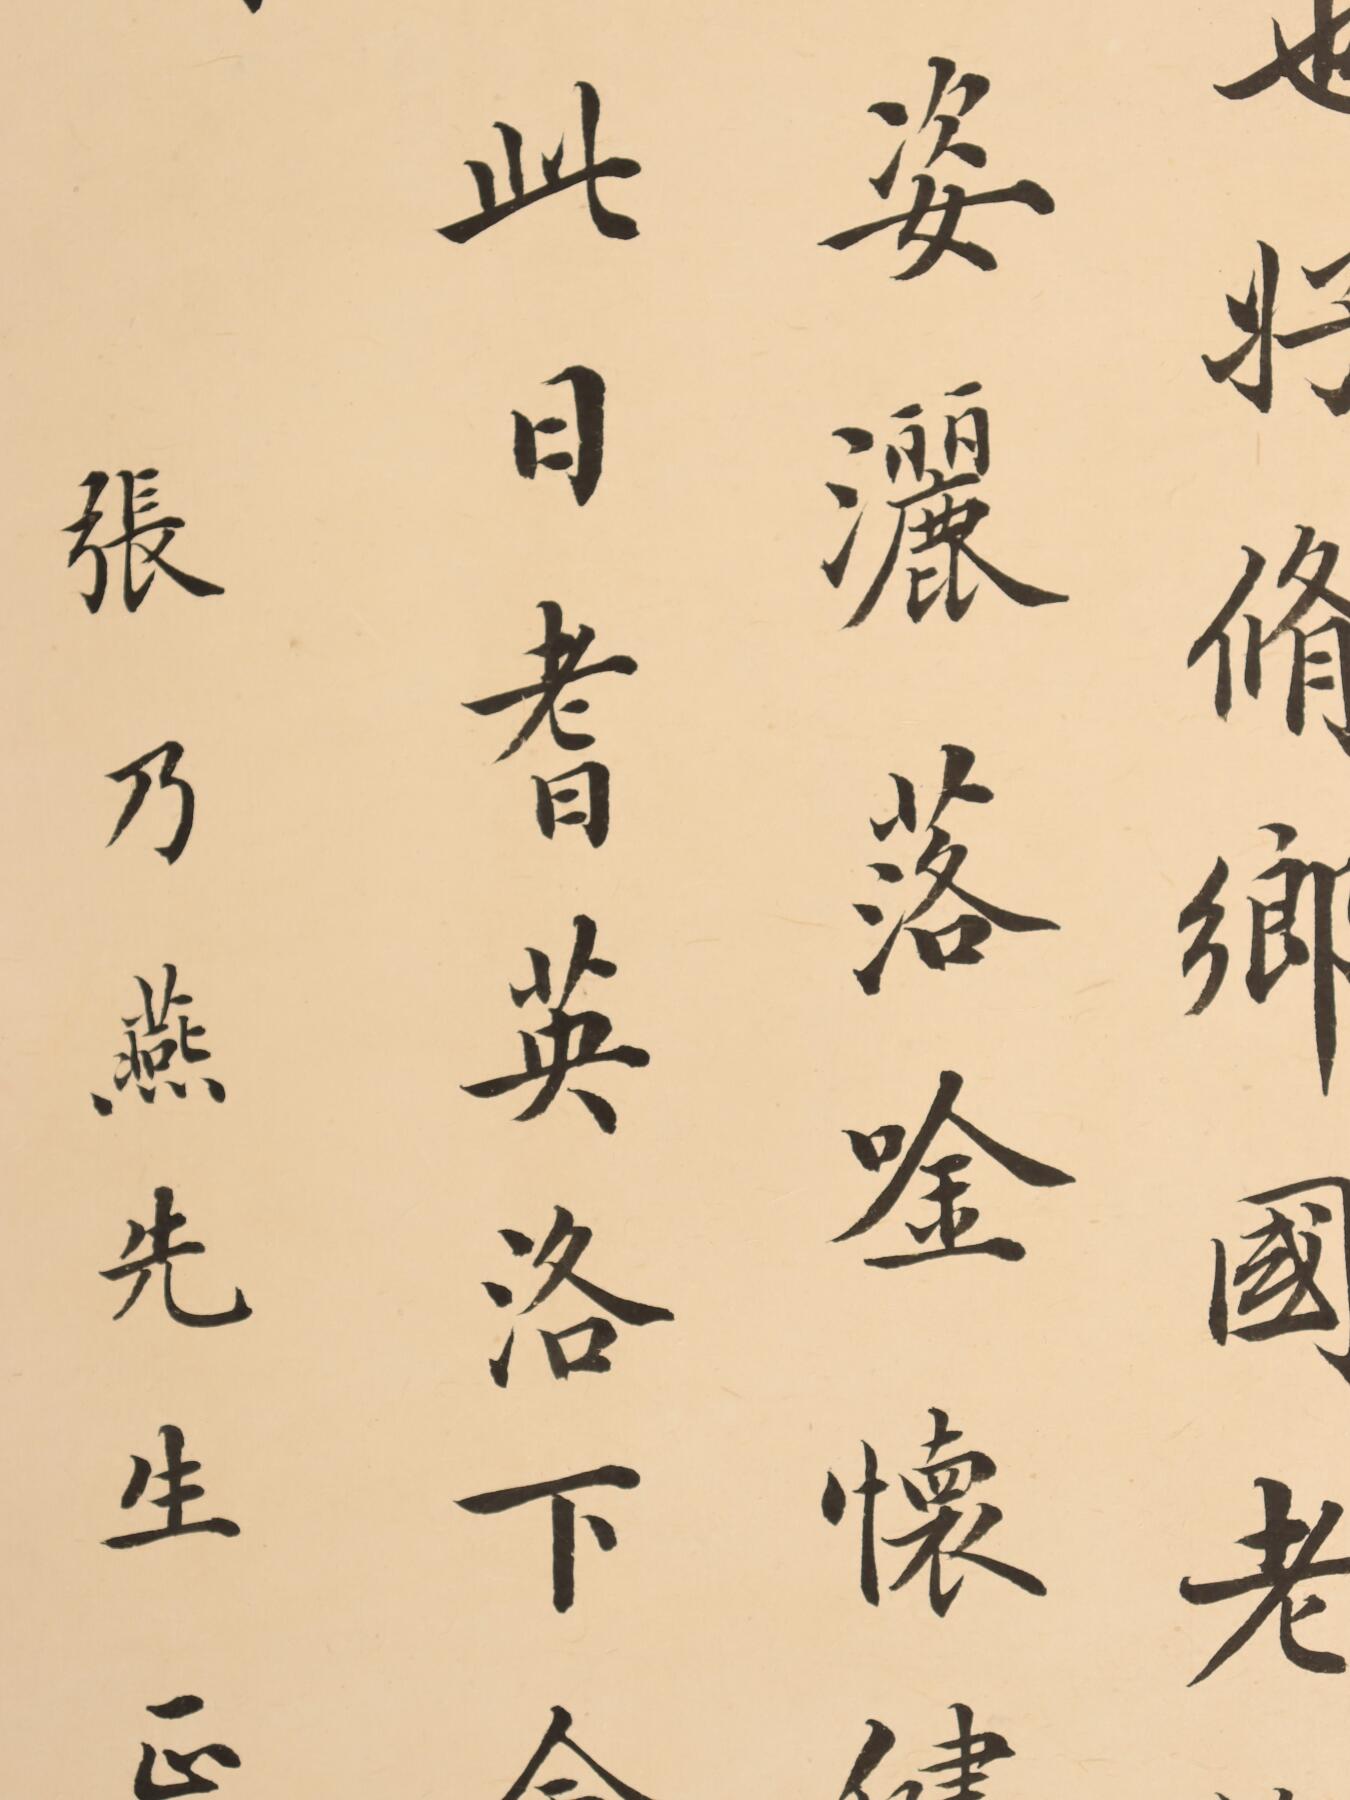 也將脩鄉國老
姿灑落唫懷健
此日耆英洛下會
張乃燕先生正